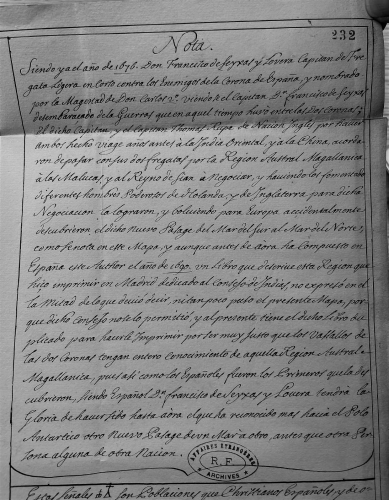 232
Nota.
Siendo ya el año de 1676. Don Francisco de Seyxas y Lovera Capitan de Fre
gata ligera en Corso contra los Enemigos de la Corona de España, y nombrado
por la Magestad de Don Carlos 2º. viendose el Capitan Dn. francisco de Seyxas
desembarazado de la Guerras que en aquel tiempo huvo entre las Dos Coronas;
el dicho Capitan, y el Capitan Thomas Repe de Nacion Ingles por haver
ambos hecho viage años antes a la Jndia Oriental, y a la China, acorda
ron de pasar con sus dos fregatas por la Region Austral Magallanica
à las Malucas y al Reyno de Sian à Negociar, y haviendo los fomentado
diferentes hombres Poderosos de Holanda, y de Jnglaterra para dicha
Negociacion la lograron, y bolviendo para Europa accidentalmente
descubrieron el dicho Nuevo Pasage del Mar del Sur al Mar del Norte,
como se nota en este Mapa, y aunque antes de aora ha Compuesto en
España este Author el año de 1690. vn Libro que descrive esta Region que
hizo imprimir en Madrid dedicado al Consejo de Jndias, no expresó en el
la Mitad de lo que devia decir, ni tan poco puso el presente Mapa, por
que dicho Consejo no se lo permitió, y al presente tiene el dicho libro du
plicado para hacerle Jmprimir por ser muy justo que los Vasallos de
las dos Coronas tengan entero Conocimiento de aquella Region Austral
Magallanica, pues asi como los Españoles fueron los Primeros que la des
cubrieron, siendo Español Dn. francisco de Seyxas y Lovera tendrá la
Gloria de haver sido hasta aora el que ha reconocido mas hacia el Polo
Antartico otro Nuevo Pasage de vn Mar a otro, antes que otra Per
sona alguna de otra Nacion.
AFFAIRES ETRANGERES
R.F.
ARCHIVES
Estos señales son Poblaciones que Christianos Españoles y de